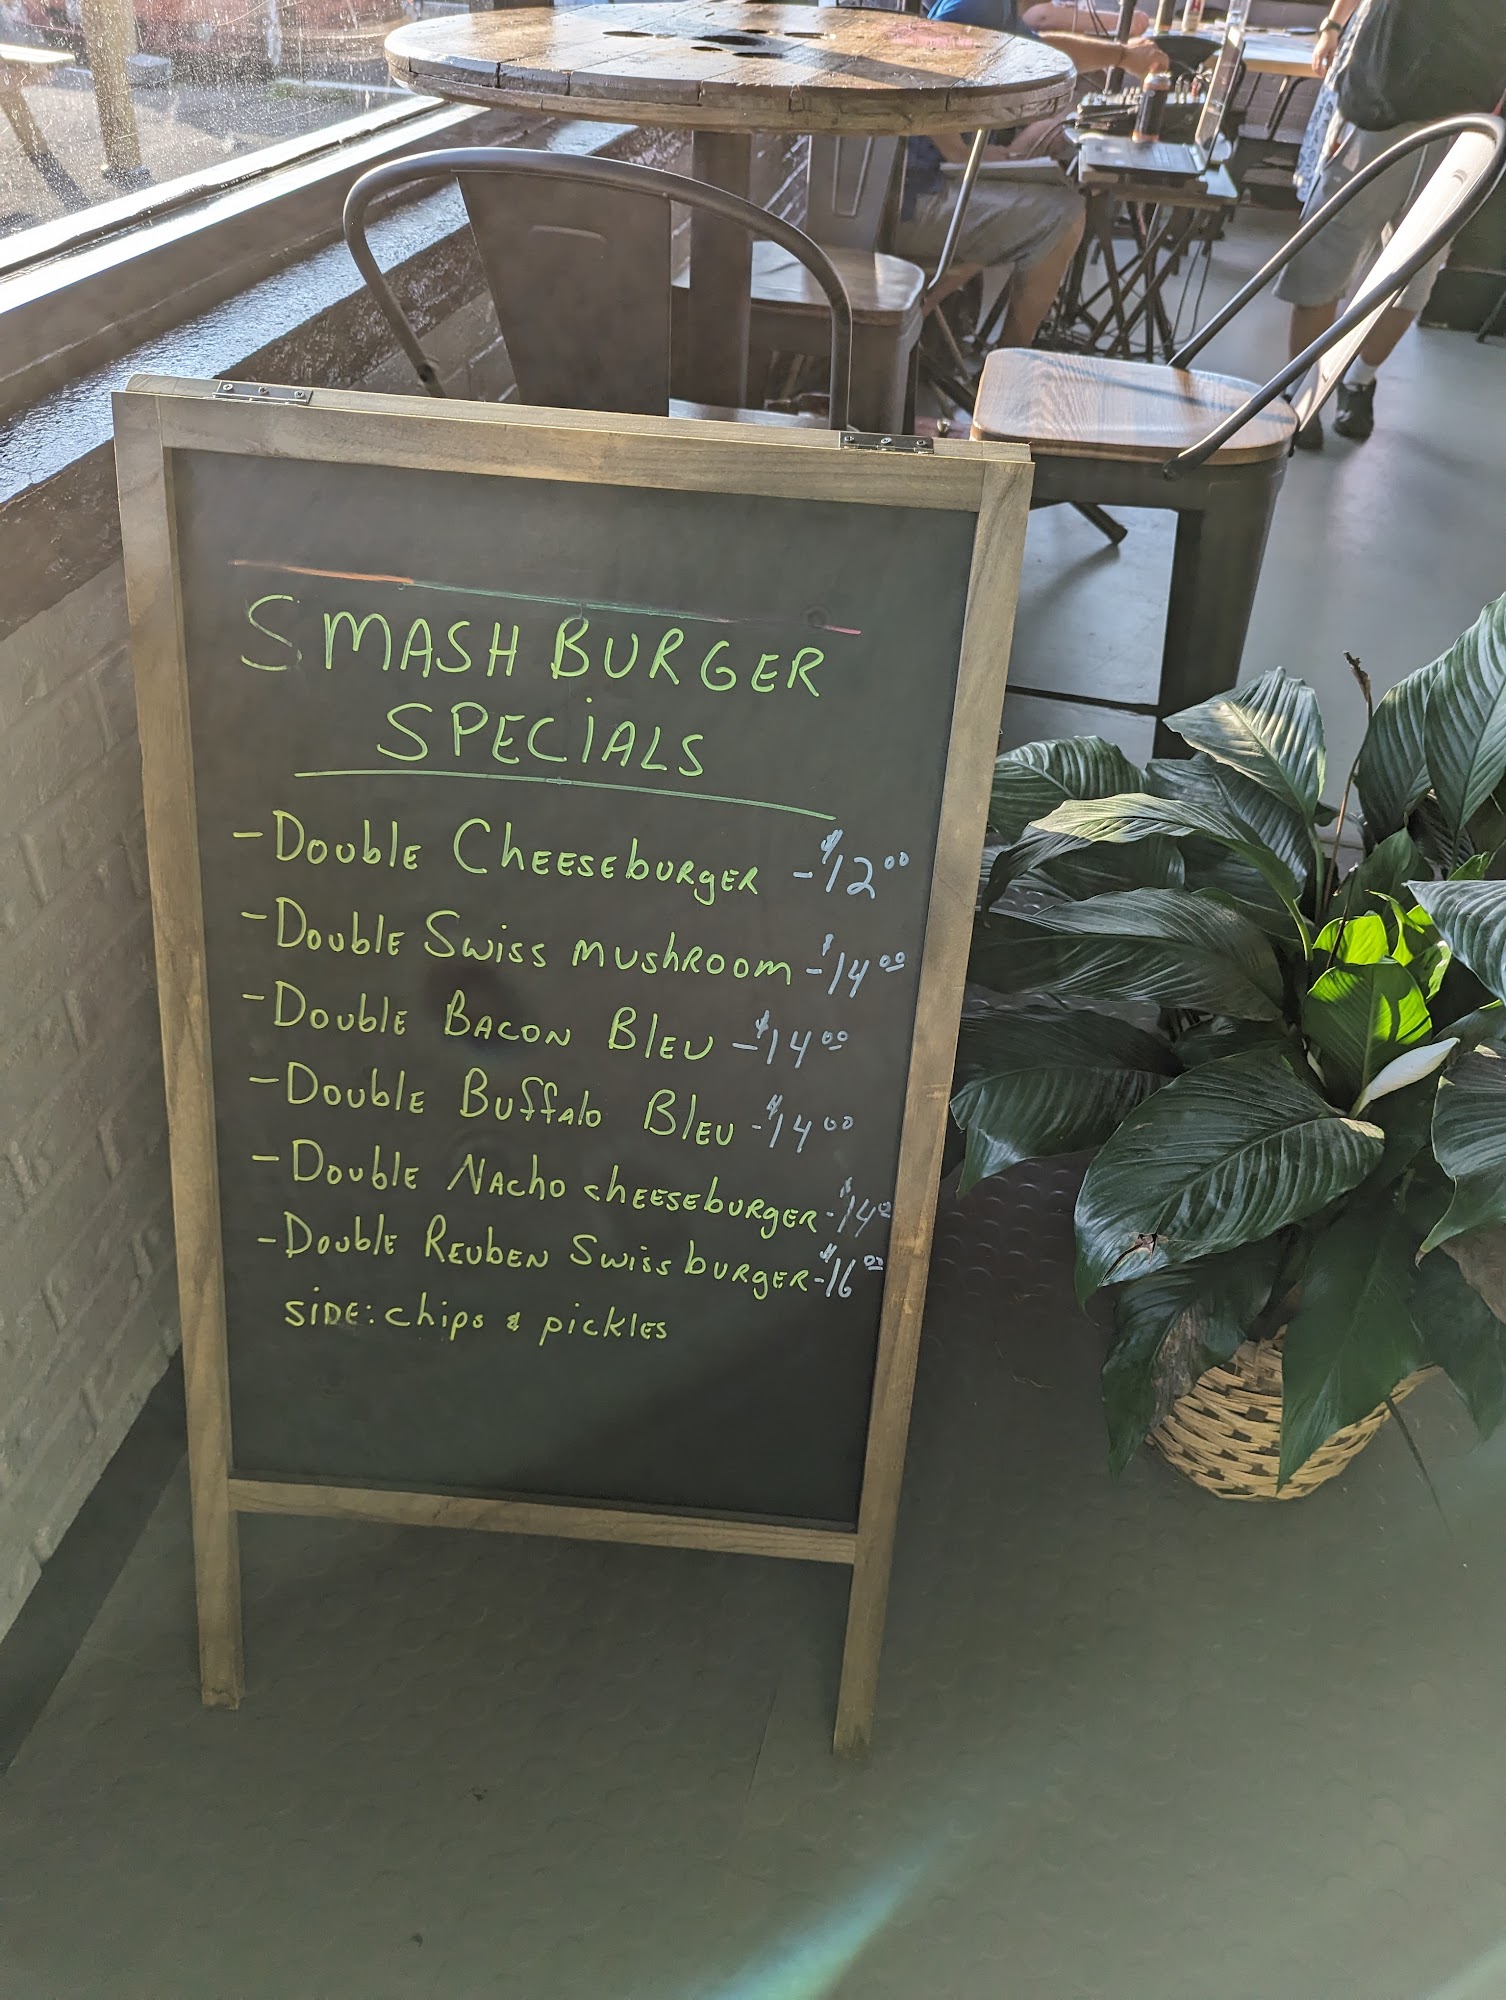 SMASH BURGER
SPECiALS
- Double Cheeseburger - $12.00
- Double Swiss mushroom - $14.00
- Double Bacon Bleu - $14.00
- Double Buffalo Bleu - $14.00
- Double Nacho cheeseburger - $14.00
- Double Reuben Swiss burger - $16.00
SiDE: chips & pickles